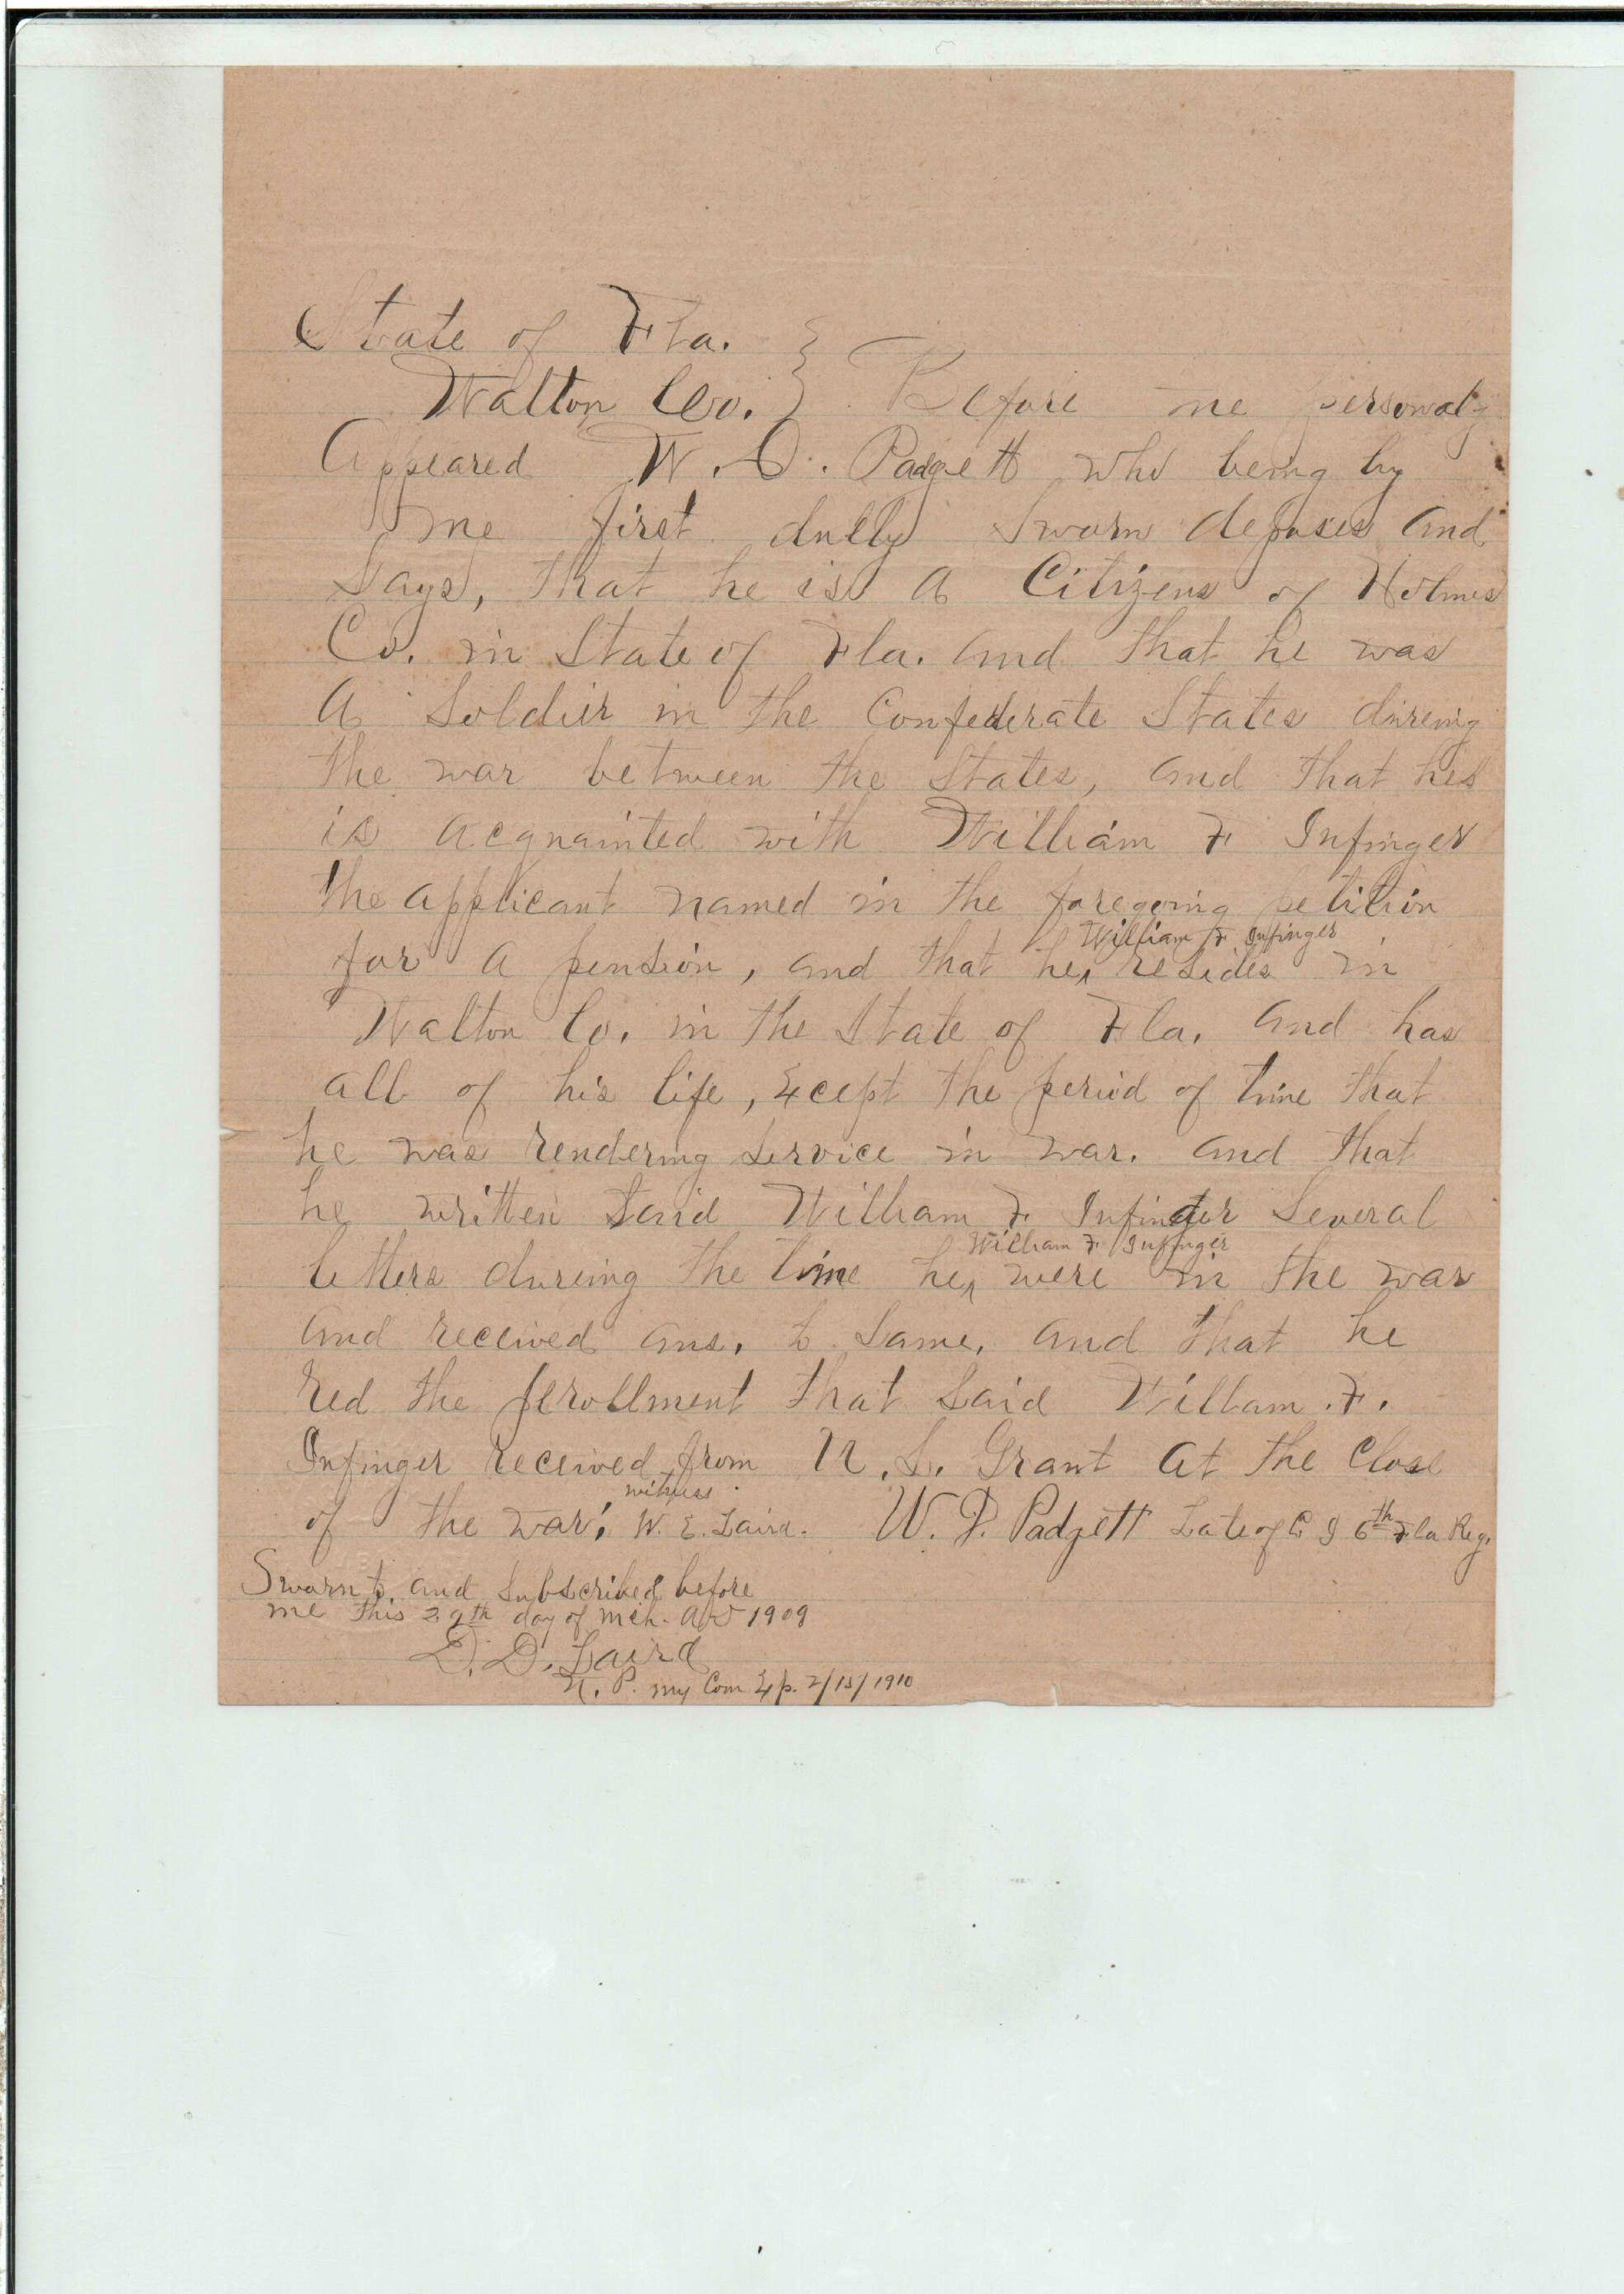 State of Fla. }
Walton Co. } Before me personaly
Appeared W. D. Padgett who being by
me first dully Sworn deposes and
Says, that he is a Citizens of Holmes
Co. in State of Fla. and that he was
a Soldier in the Confederate States dureing
the war between the States, and that he
is acquainted with William F Infinger
the applicant named in the foregoing petition
William F. Infinger
for a pension, and that he^ resides in
Walton Co. in the State of Fla. and has
all of his life, Except the period of time that
he was rendering service in war. and that
he written said William F Infinger Several
William F Infinger
letters dureing the time he^ were in the war
and received ans. to Same, and that he
red the perollment that said Willam F.
Infinger received from U. S. Grant at the Close
witness
of the war. W. E. Laird. W. D. Padgett Late of C I 6th Fla Reg.
Sworn to and Subscribed before
me this 29th day of Mch. AD 1909
D. D. Laird
N. P. my Com Exp. 2/15/1910